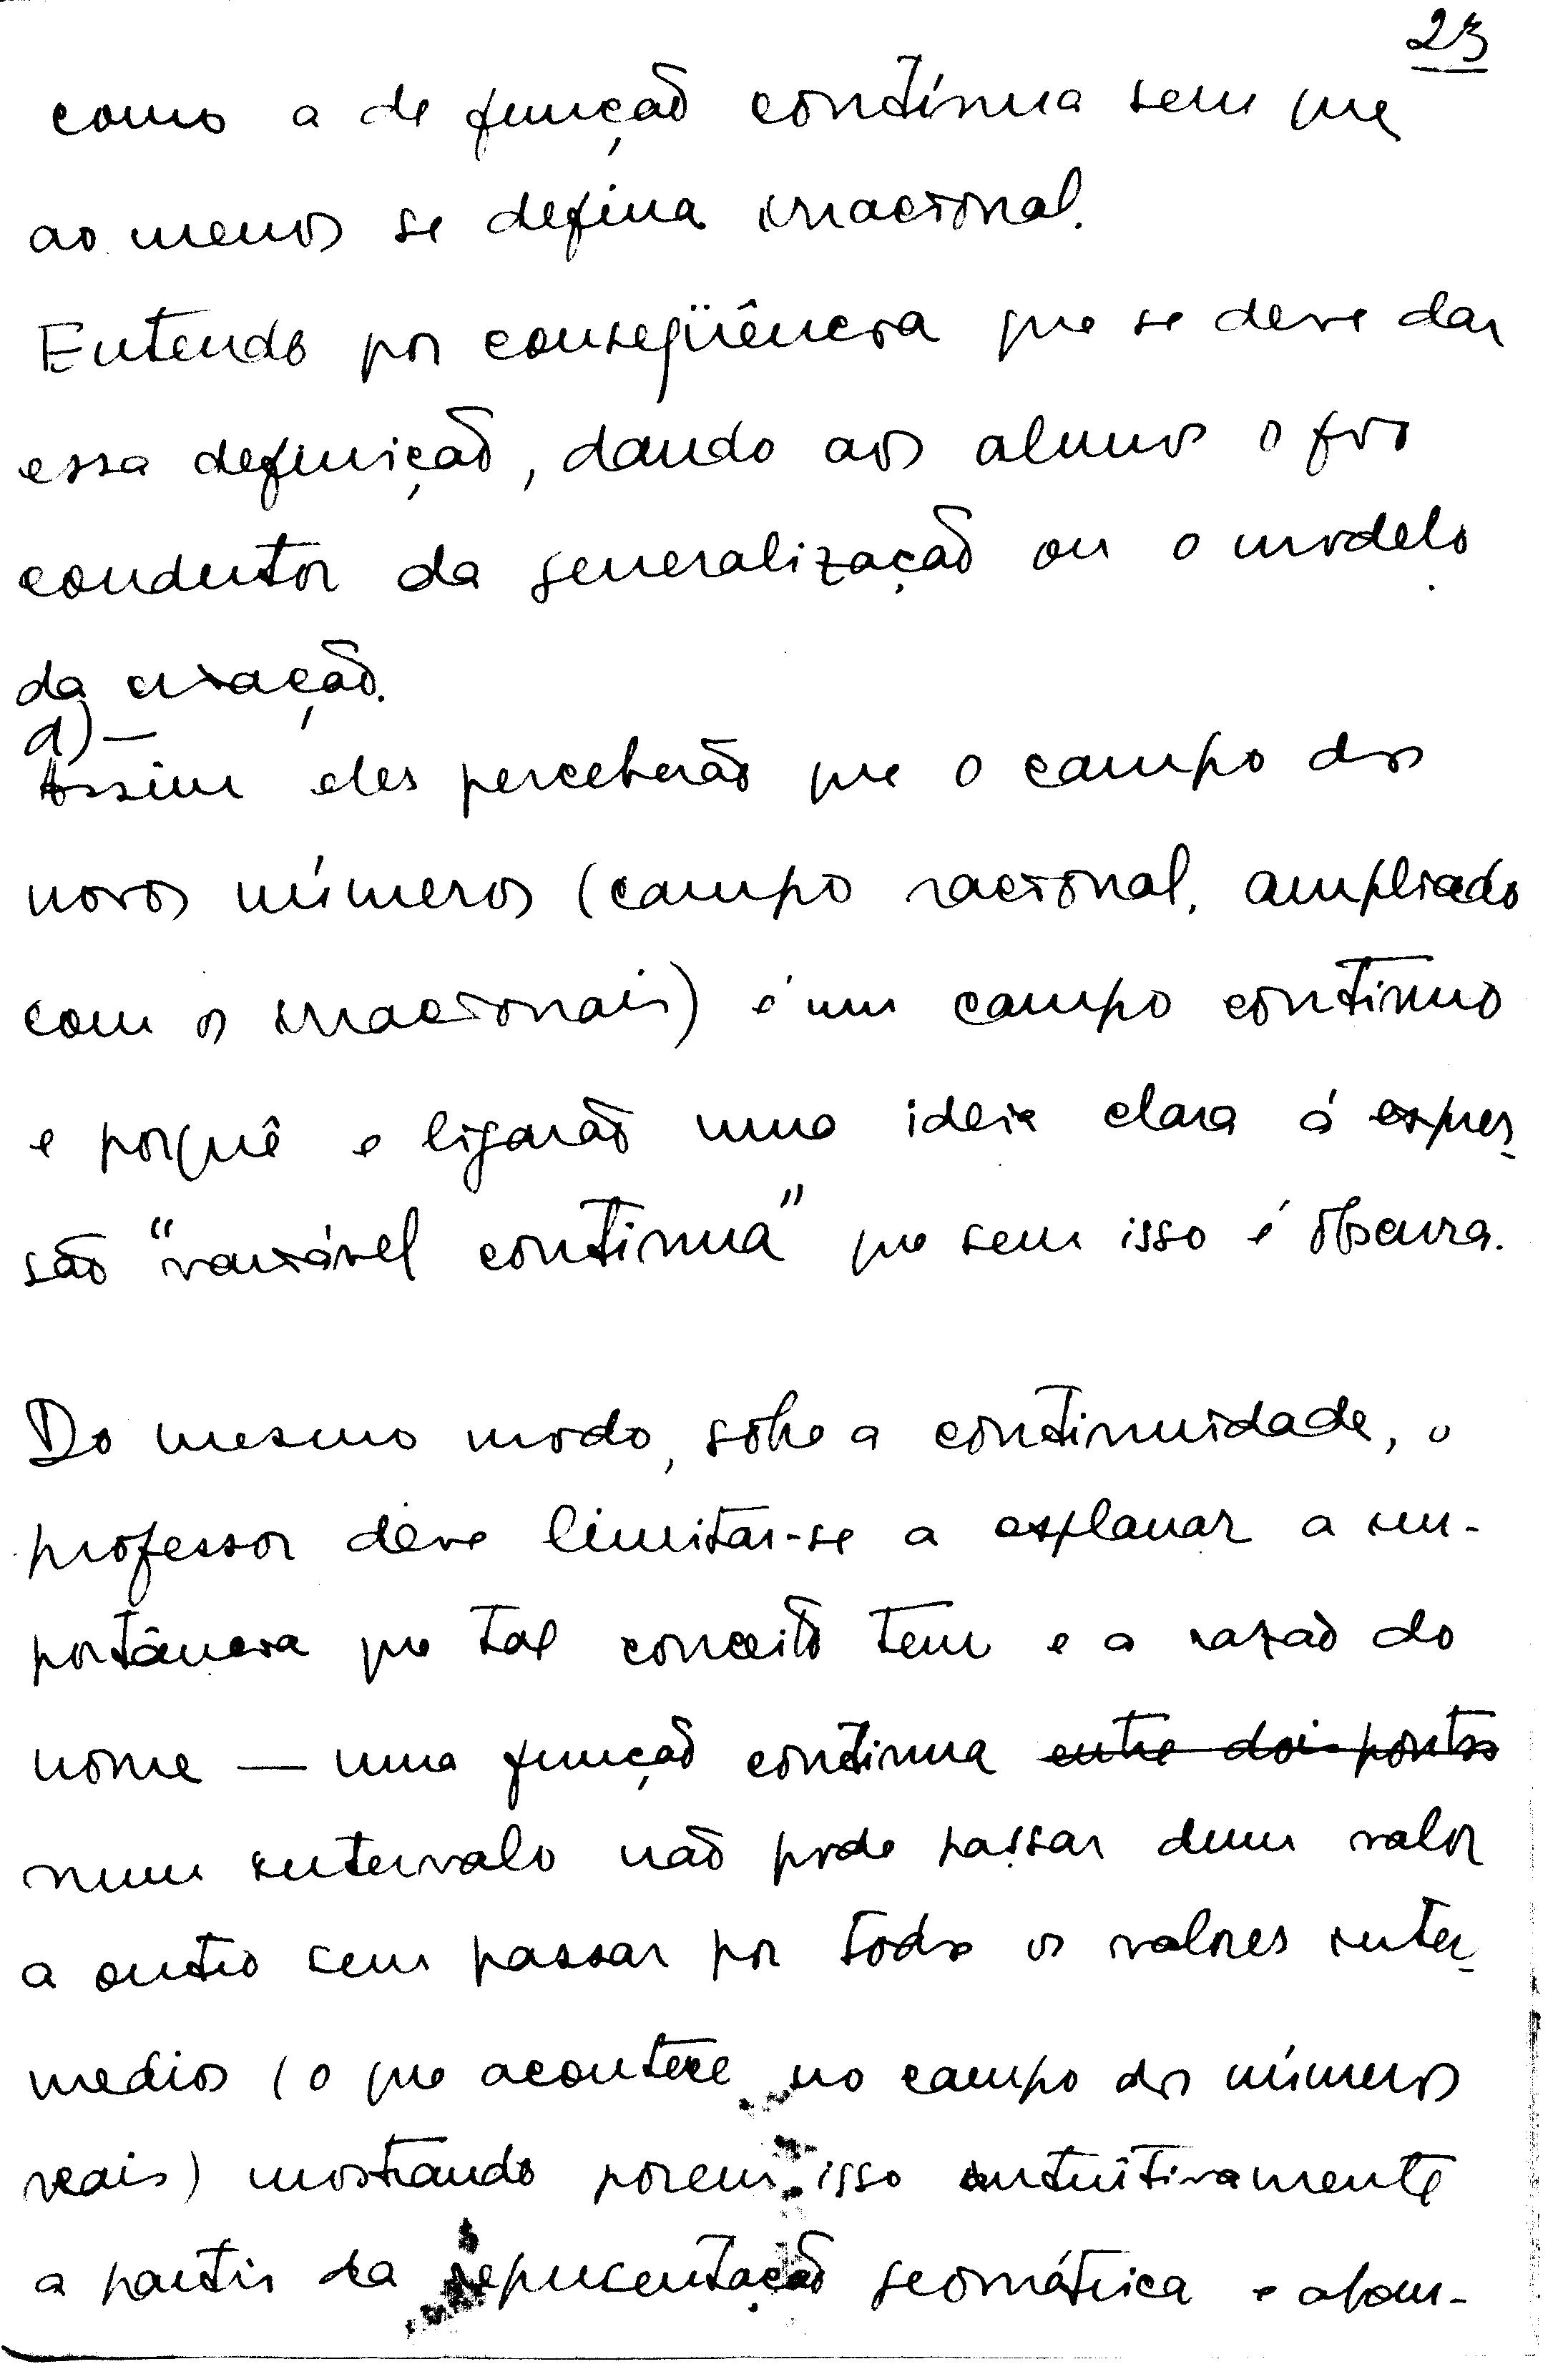 23
como a de função contínua sem que
ao menos se defina irracional.
Entendo por conseqüência que se deve dar
essa definição, dando aos alunos o fio
condutor da generalização ou o modelo
da criação.
d) —
Assim eles perceberão que o campo dos
novos números (campo racional, ampliado
com os irracionais) é um campo contínuo
e porquê e ligarão uma ideia clara á expres-
são "variável continua" que sem isso é obscura.
Do mesmo modo, sobre a continuidade, o
professor deve limitar-se a explanar a im-
portância que tal conceito tem e a razão do
nome — uma função continua entre dois pontos
num intervalo não pode passar dum valor
a outro sem passar por todos os valores inter-
medios (o que acontece no campo dos números
reais) mostrando porem isso intuitivamente
a partir da representação geométrica e afou-